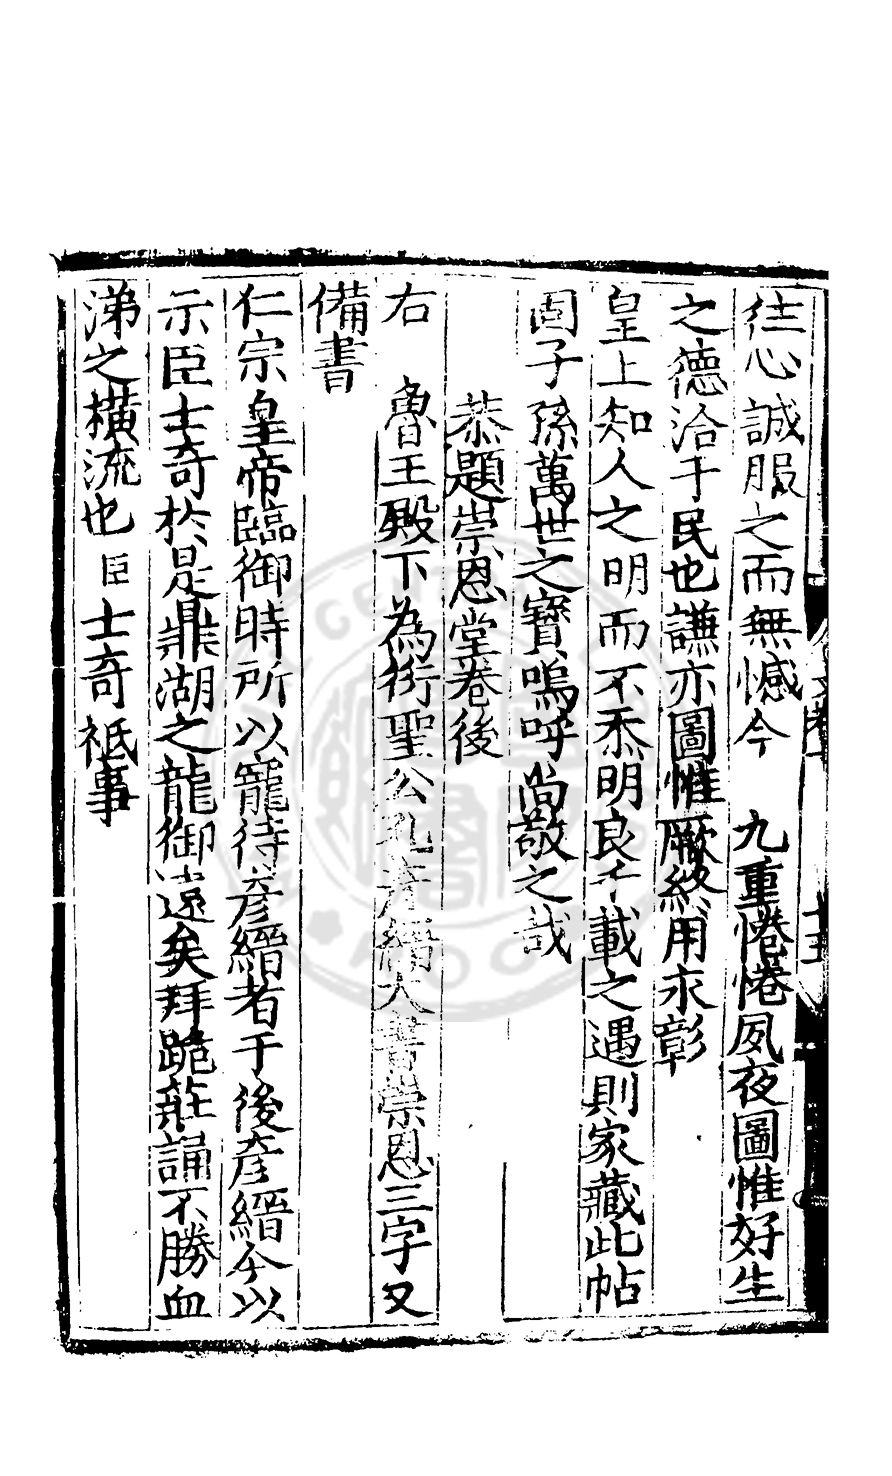 往心誠服之而無憾今　九重惓惓夙夜圖惟好生
之德洽于民也謙亦圖惟厥終用永彰
皇上知人之明而不忝明良千載之遇則家藏此帖
固子孫萬世之寶嗚呼尚敬之哉
恭題崇恩堂卷後
右　魯王殿下為衍聖公孔彥縉大書崇恩三字又
備書
仁宗皇帝臨御時所以寵待彥縉者于後彥縉今以
示臣士奇於是鼎湖之龍御遠矣拜跪莊誦不勝血
涕之横流也臣士奇祗事